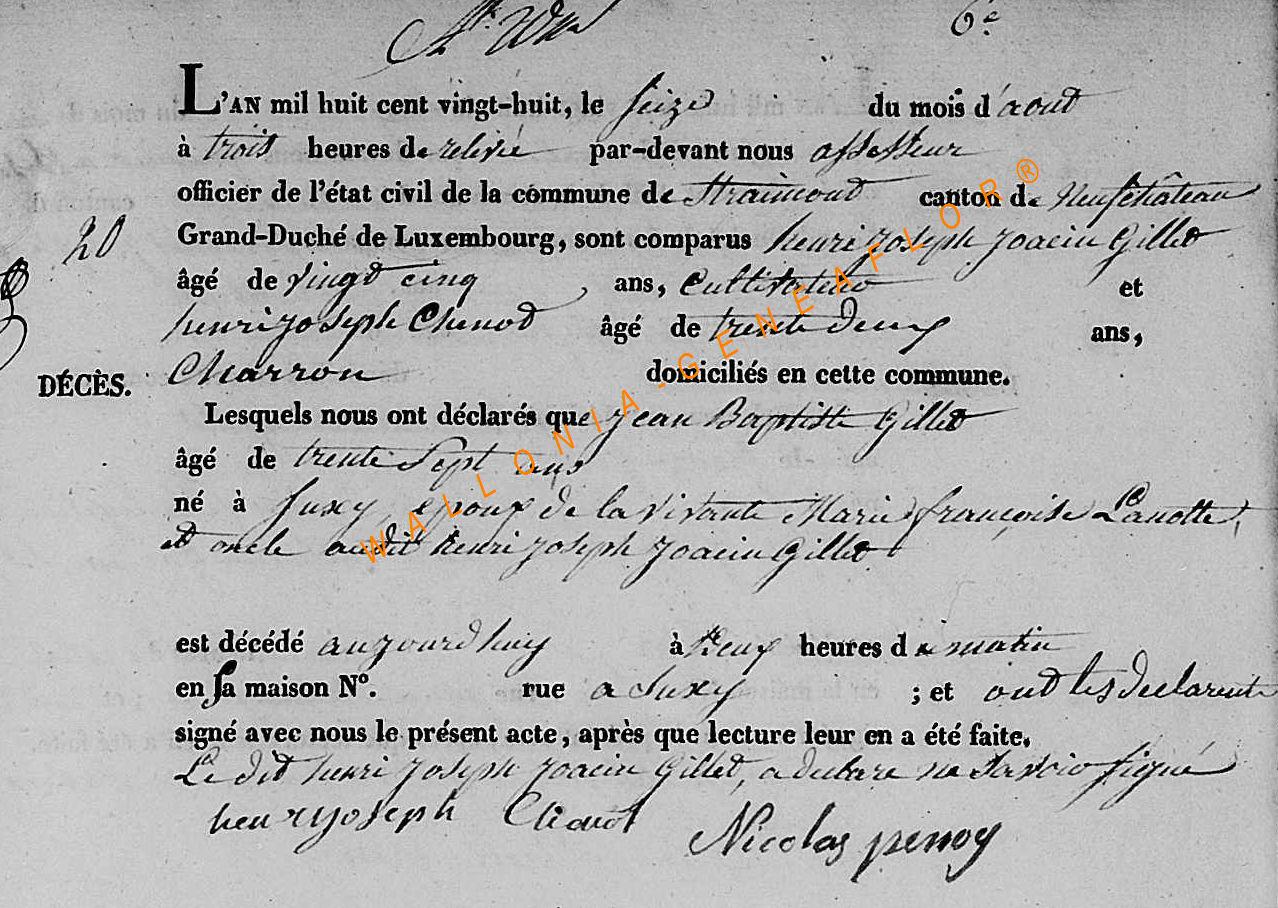 6.e
L'AN mil huit cent vingt-huit, le seize du mois d'aout
à trois heures de relevée par-devant nous assesseur
officier de l'état civil de la commune de Straimont canton de Neufchâteau
20
Grand-Duché de Luxembourg, sont comparus henri joseph joacin Gillet
âgé de vingt cinq ans, Cultivateur et
henri joseph Chenot âgé de trente deux ans,
DÉCÈS.
Charron domiciliés en cette commune.
Lesquels nous ont déclarés que jean Baptiste Gillet
âgé de trente Sept ans
né à Suxy, epoux de la vivante Marie françoise Lanotte,
et oncle audit henri joseph joacin Gillet
est décédé aujourdhuy à deux heures du matin
en sa maison N°. rue a Suxy ; et ont les declarents
signé avec nous le présent acte, après que lecture leur en a été faite.
Le dit henri joseph joacin Gillet, a declare ne savoir signé
henry joseph Chenot
Nicolas penoy
WALLONIA-GENEAFLOR®